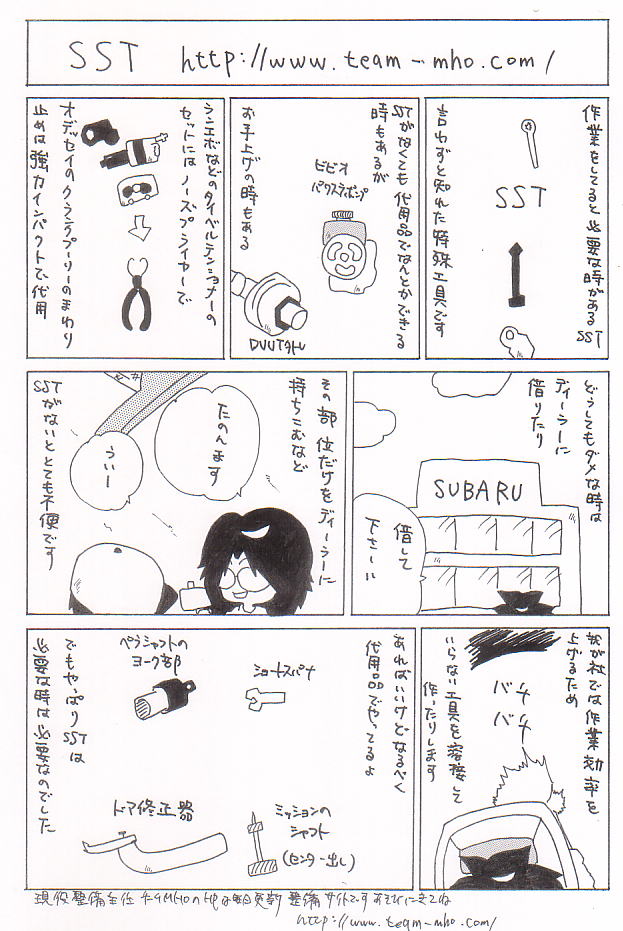 SST http://www.team-mho.com/
作業をしてると必要な時があるSST
SST
言わずと知れた特殊工具です
SSTがなくても代用品でなんとかできる
時もあるが
ビビオ
パワステポンプ
お手上げの時もある
ランエボなどのタイベルテンショナーの
セットにはノーズプライヤーで
オデッセイのクランクプーリーのまわり
止めは強力インパクトで代用
どうしてもダメな時は
ディーラーに
借りたり
SUBARU
借して
下さーい
その部位だけをディーラーに
持ちこむなど
たのんます
うぃー
SSTがないととても不便です
我が社では作業効率を
上げるため
バチ
バチ
いらない工具を溶接して
作ったりします
あればいいけどなるべく
代用品でやってるよ
ショートスパナ
ペラシャフトの
ヨーク部
ミッションの
シャフト
(センター出し)
ドア修正器
でもやっぱりSSTは
必要な時は必要なのでした
現役整備主任 チームMHOのHPは毎日更新 整備サイトです あそびにきてね
http://www.team-mho.com/